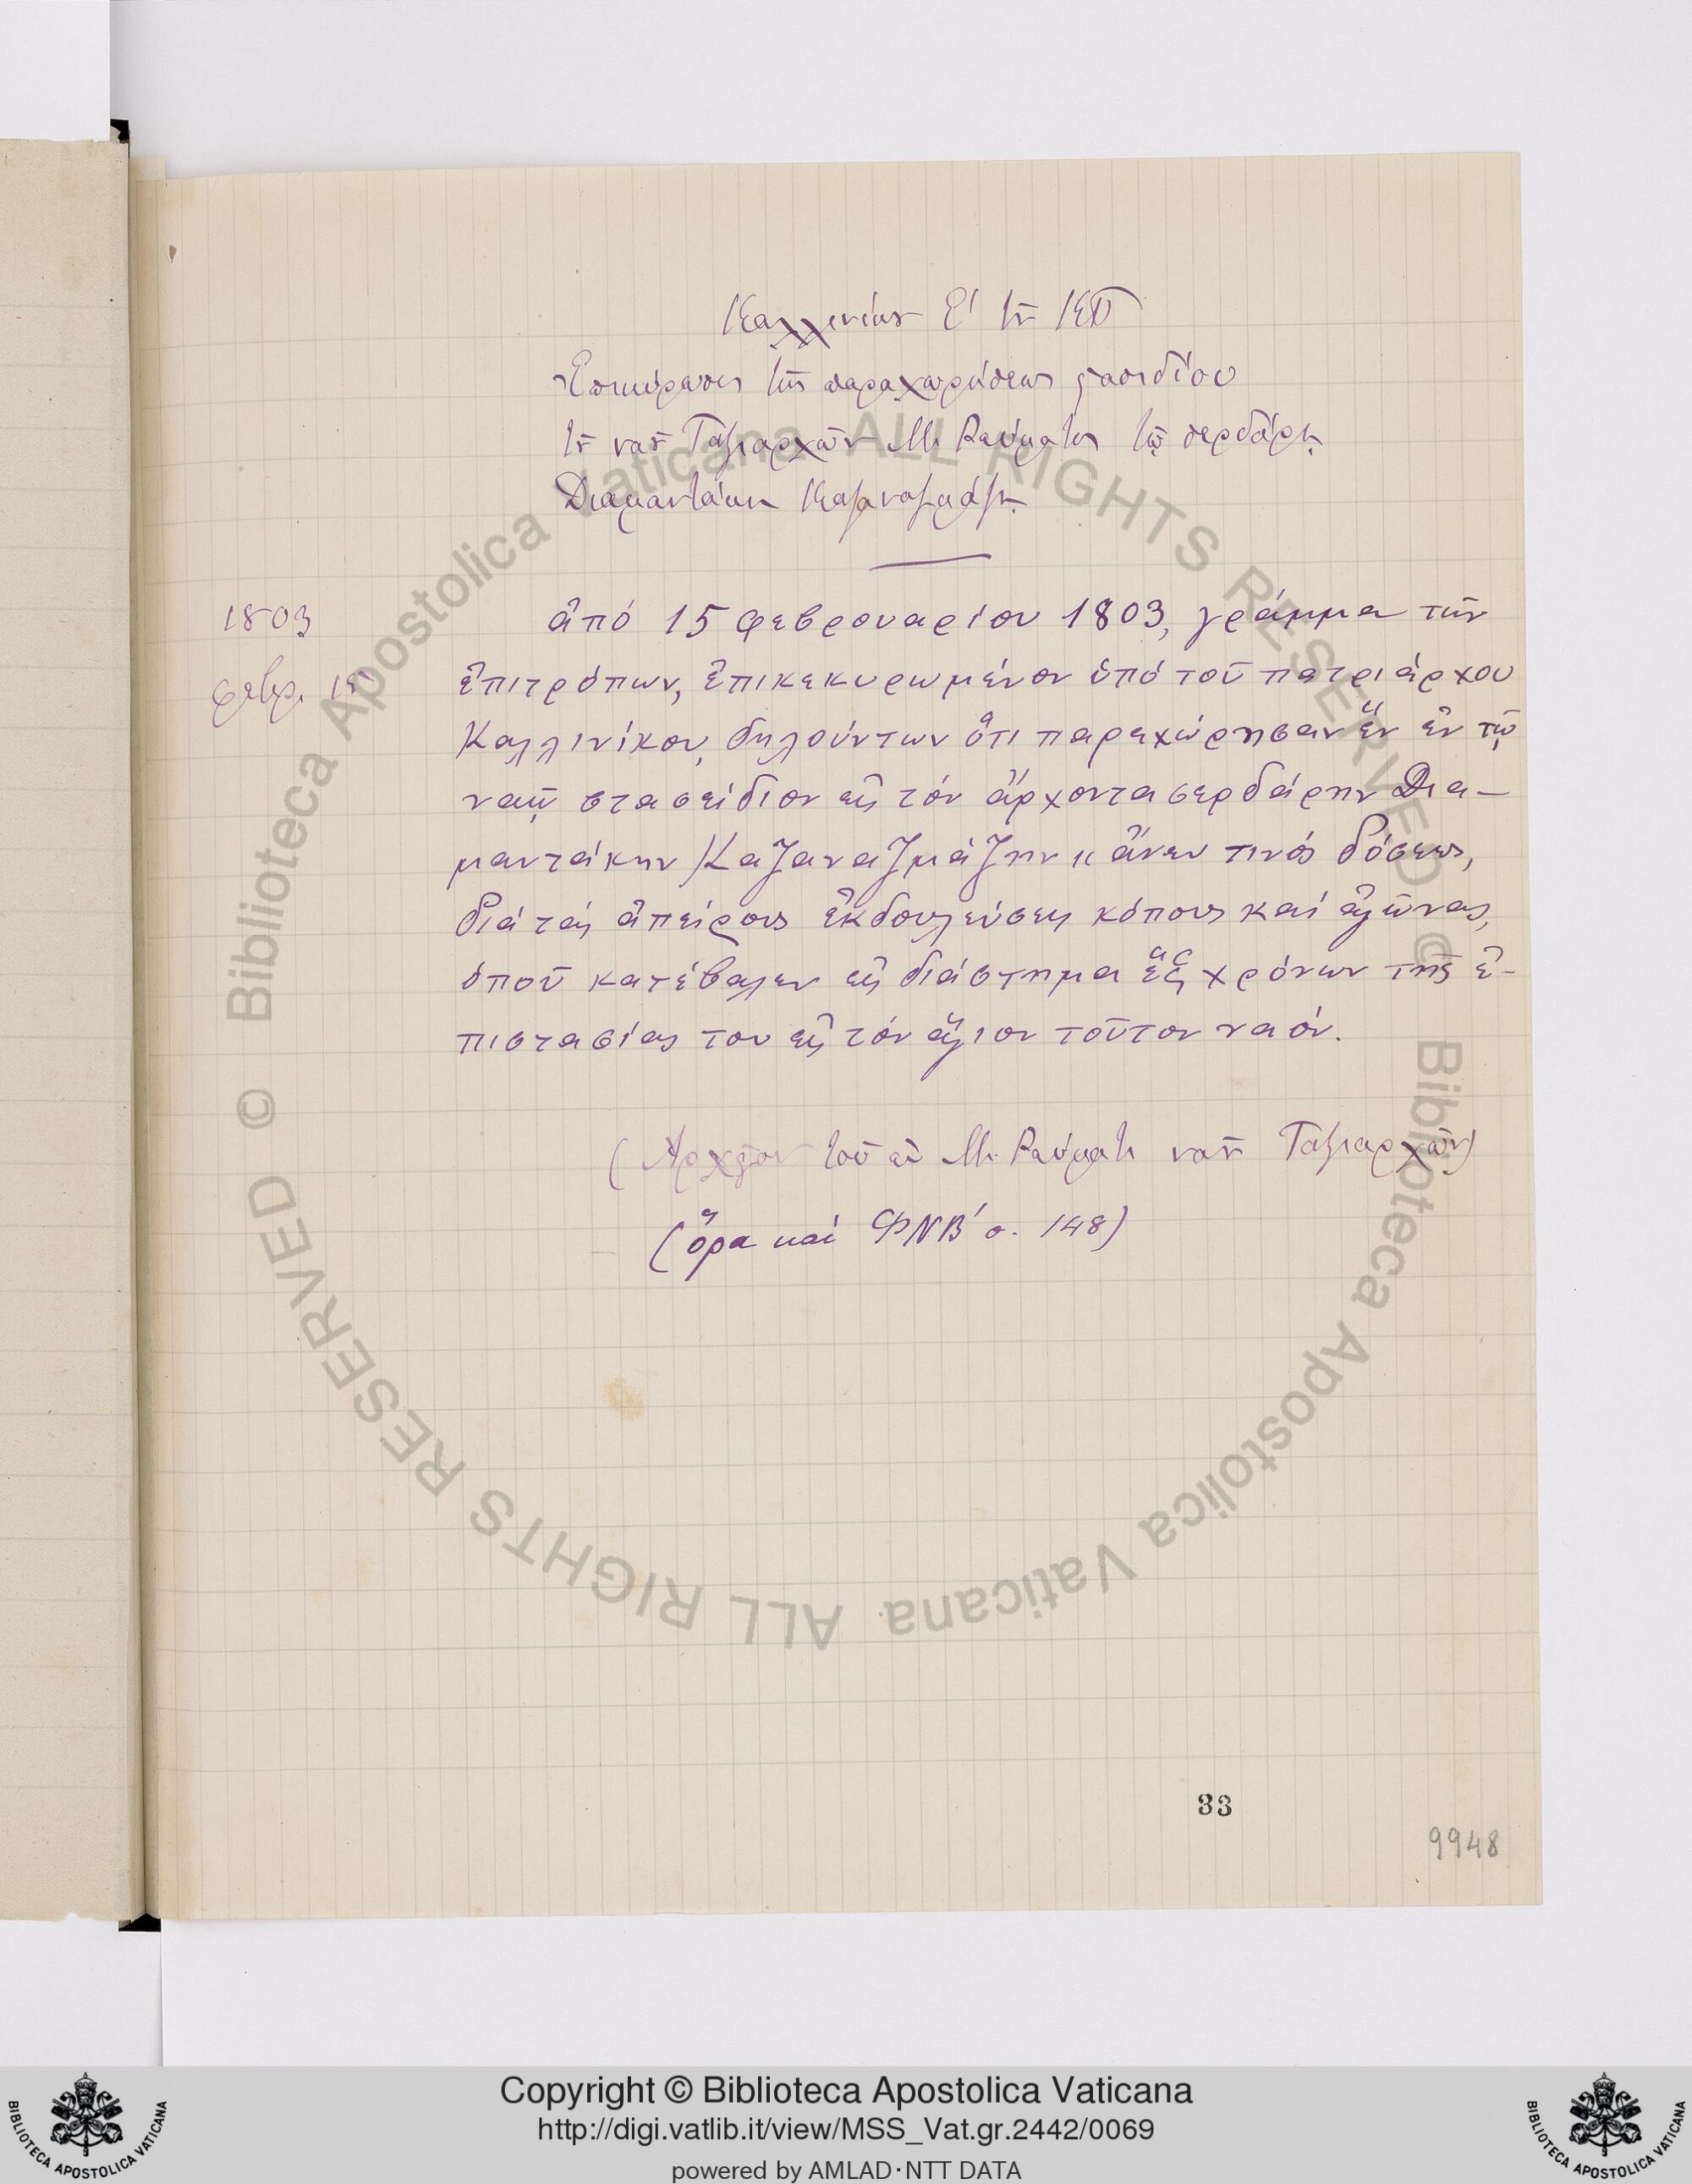 Καλλινίκου Ε' τοῦ ΚΠ
Ἐπικύρωσις τῆς παραχωρήσεως στασιδίου
τοῦ ναοῦ Ταξιαρχῶν Μ. Ρεύματος τῷ σερδάρῃ
Διαμαντάκῃ Καζαναζμάζῃ
1803
φεβρ. 15
ἀπό 15 φεβρουαρίου 1803, γράμμα τῶν
ἐπιτρόπων, ἐπικεκυρωμένον ὑπό τοῦ πατριάρχου
Καλλινίκου, δηλούντων ὅτι παρεχώρησαν ἕν ἐν τῷ
ναῷ στασείδιον εἰς τόν ἄρχοντα σερδάρην Δια-
μαντάκην Καζαναζμάζην « ἄνευ τινός δόσεως,
διά τάς ἀπείρους ἐκδουλεύσεις κόπους καί ἀγῶνας,
ὁποῦ κατέβαλεν εἰς διάστημα ἕξ χρόνων τῆς ἐ-
πιστασίας του εἰς τόν ἅγιον τοῦτον ναόν.
(Ἀρχεῖον τοῦ ἐν Μ. Ρεύματι ναοῦ Ταξιαρχῶν)
(ὅρα καί ΦΝΒ' σ. 148)
33
9948
© Biblioteca Apostolica Vaticana ALL RIGHTS RESERVED
© Biblioteca Apostolica Vaticana ALL RIGHTS RESERVED
Copyright © Biblioteca Apostolica Vaticana
http://digi.vatlib.it/view/MSS_Vat.gr.2442/0069
powered by AMLAD·NTT DATA
BIBLIOTECA APOSTOLICA VATICANA
BIBLIOTECA APOSTOLICA VATICANA